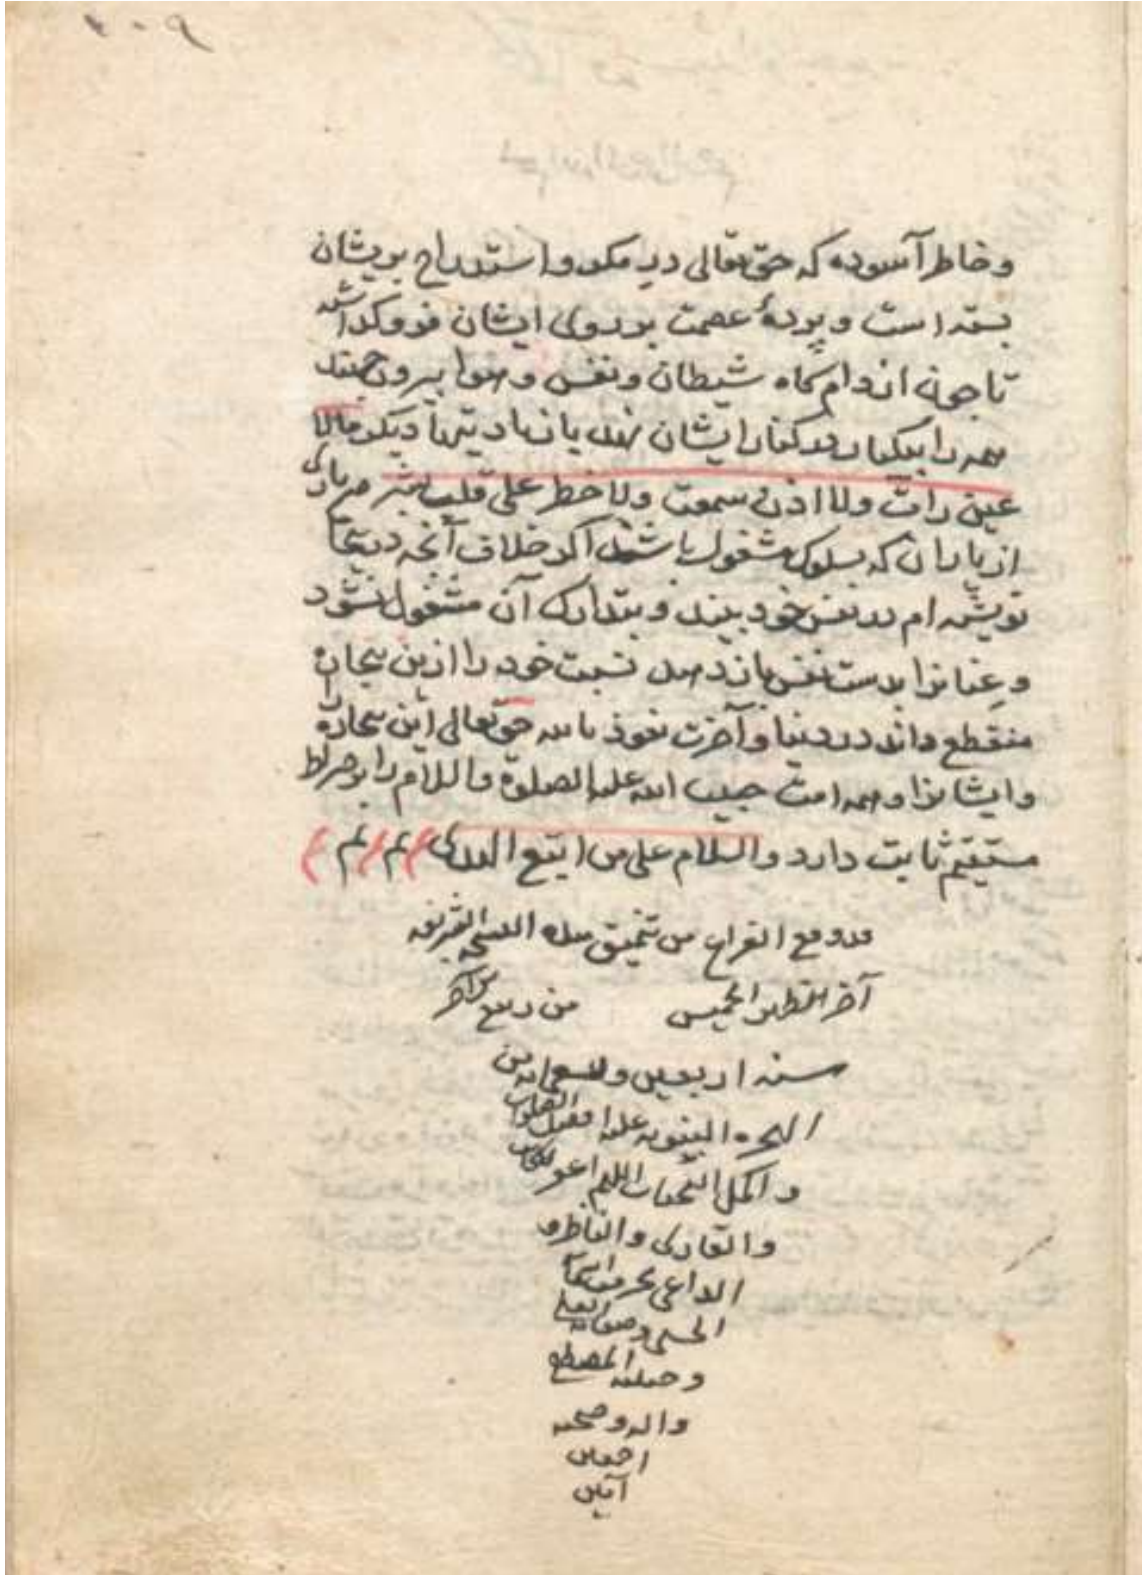 ۲۰۹
و خاطر آسوده که حق تعالی در مکر و استدراج بریشان
بسته است و پردهٔ عصمت بر روی ایشان فرو گذاشته
تا چون از دام گاه شیطان و نفس و هوا بیرون جهند
همه را بیکبار در کنار ایشان نهد یا زیادتیها دیگر مالا
عین رات ولا اذن سمعت ولا خطر علی قلب بشر هر یاری
از یاران که بسلوک مشغول باشند اگر خلاف آنچه درینجا
نوشته ام در نفس خود بیند و بتدارک آن مشغول نشود
و عنانرا بدست نفس باز دهد نسبت خود را ازین بیچاره
منقطع داند در دنیا و آخرت نعوذ بالله حق تعالی این بیچاره
و ایشانرا و همه امت حبیب الله علیه الصلوة والسلام را بر صراط
مستقیم ثابت دارد والسلام علی من اتبع الهدی تم تم
قد وقع الفراغ من تنمیق هذه النسخه الشریفه
آخر الخمیس من ربیع الآخر
سنه اربعین و تسعمایه من
الهجره النبویه علیه افضل الصلوات
و اکمل التحیات اللهم اغفر لکاتبه
والقاری والناظر و
الداعی بحرمة اسمائه
الحسنی و صفاته العلی
و حبیبه المصطفی
واله وصحبه
اجمعین
آمین